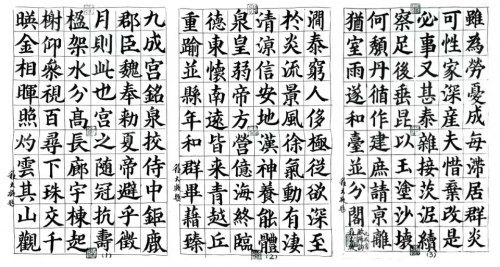 九成宮銘泉挍侍中鉅鹿
郡臣魏奉勅夏帝避子徵
月則此也宮之隨冠抗壽
楹架水分髙長廊宇棟起
榭仰衆視百尋下珠交千
暎金相暉照灼雲其山觀
(1)
澗泰窮人侈極從欲
於炎流景風徐氣動有淒
清涼信安地漢神養能體
泉皇弱帝方營億終臨
德東懷南遠皆來青越丘
重踰並縣年和群畢藉臻
(2)
雖為勞憂成滯居群炎
可性家深産夫惜棄改是
必事又甚泰雜接茨泥績
察足後垂昆以玉塗沙壞
何頹丹循作建庶請京離
猶室雨遂和臺並分閣
(3)